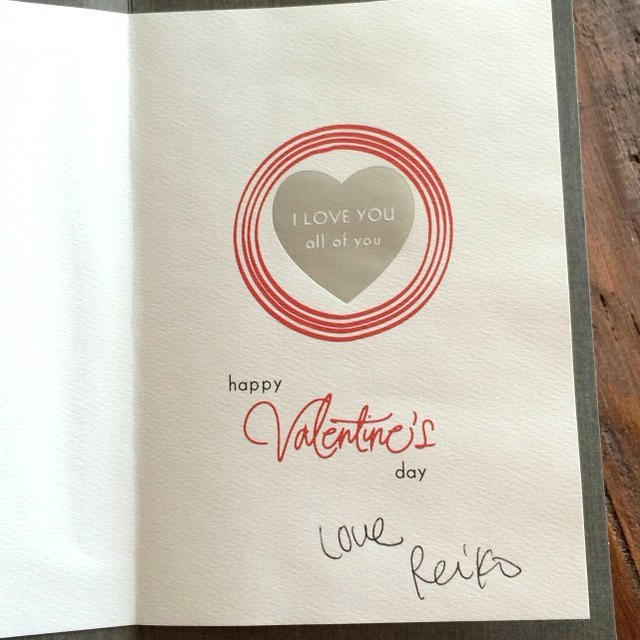 I LOVE YOU
all of you
happy
Valentine's
day
Love
Reiko